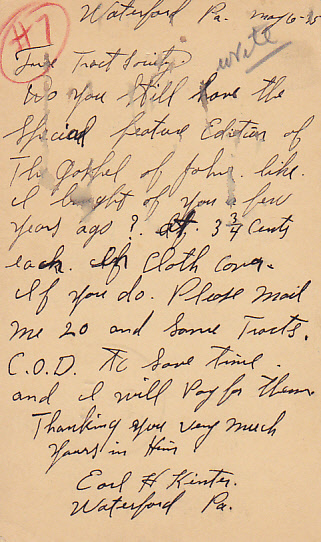 Waterford Pa. May 6-25
#7
write
Free Tract Society
Do you still have the
Special feature Edition of
The Gospel of John. like.
I bought of you a few
years ago? at. 3 3/4 Cents
each. In Cloth cover.
If you do. Please mail
me 20 and Some Tracts.
C.O.D. To Save time.
and I will Pay for them
Thanking you very much
Yours in Him
Earl H Kinter.
Waterford Pa.